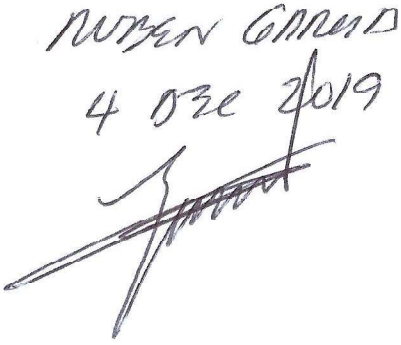 RUBEN GARCIA
4 DEC 2019